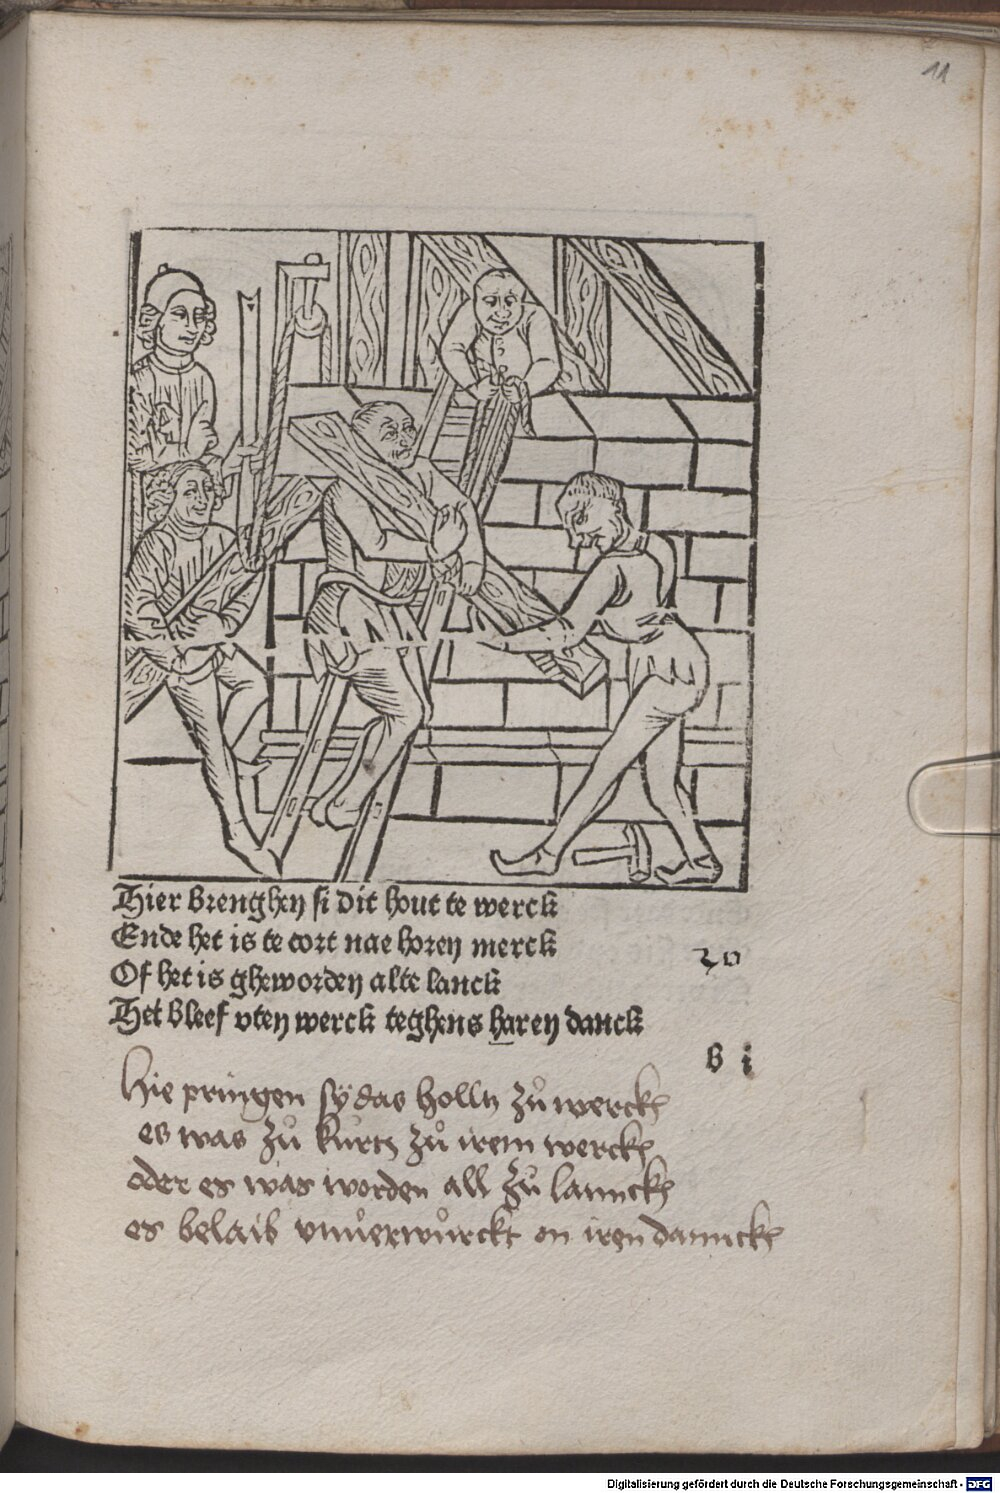 11
Hier brenghen si dit hout te werck
Ende het is te cort nae horen merck
Of het is gheworden alte lanck
Het bleef vten werck teghens haren danck
b i
Hie pringen sÿ das holltz zů werckh
es was zů kurtz zů irem werckh
oder es was worden all zů lannckh
es belaib vnuerwůrckt on iren dannckh
Digitalisierung gefördert durch die Deutsche Forschungsgemeinschaft - DFG